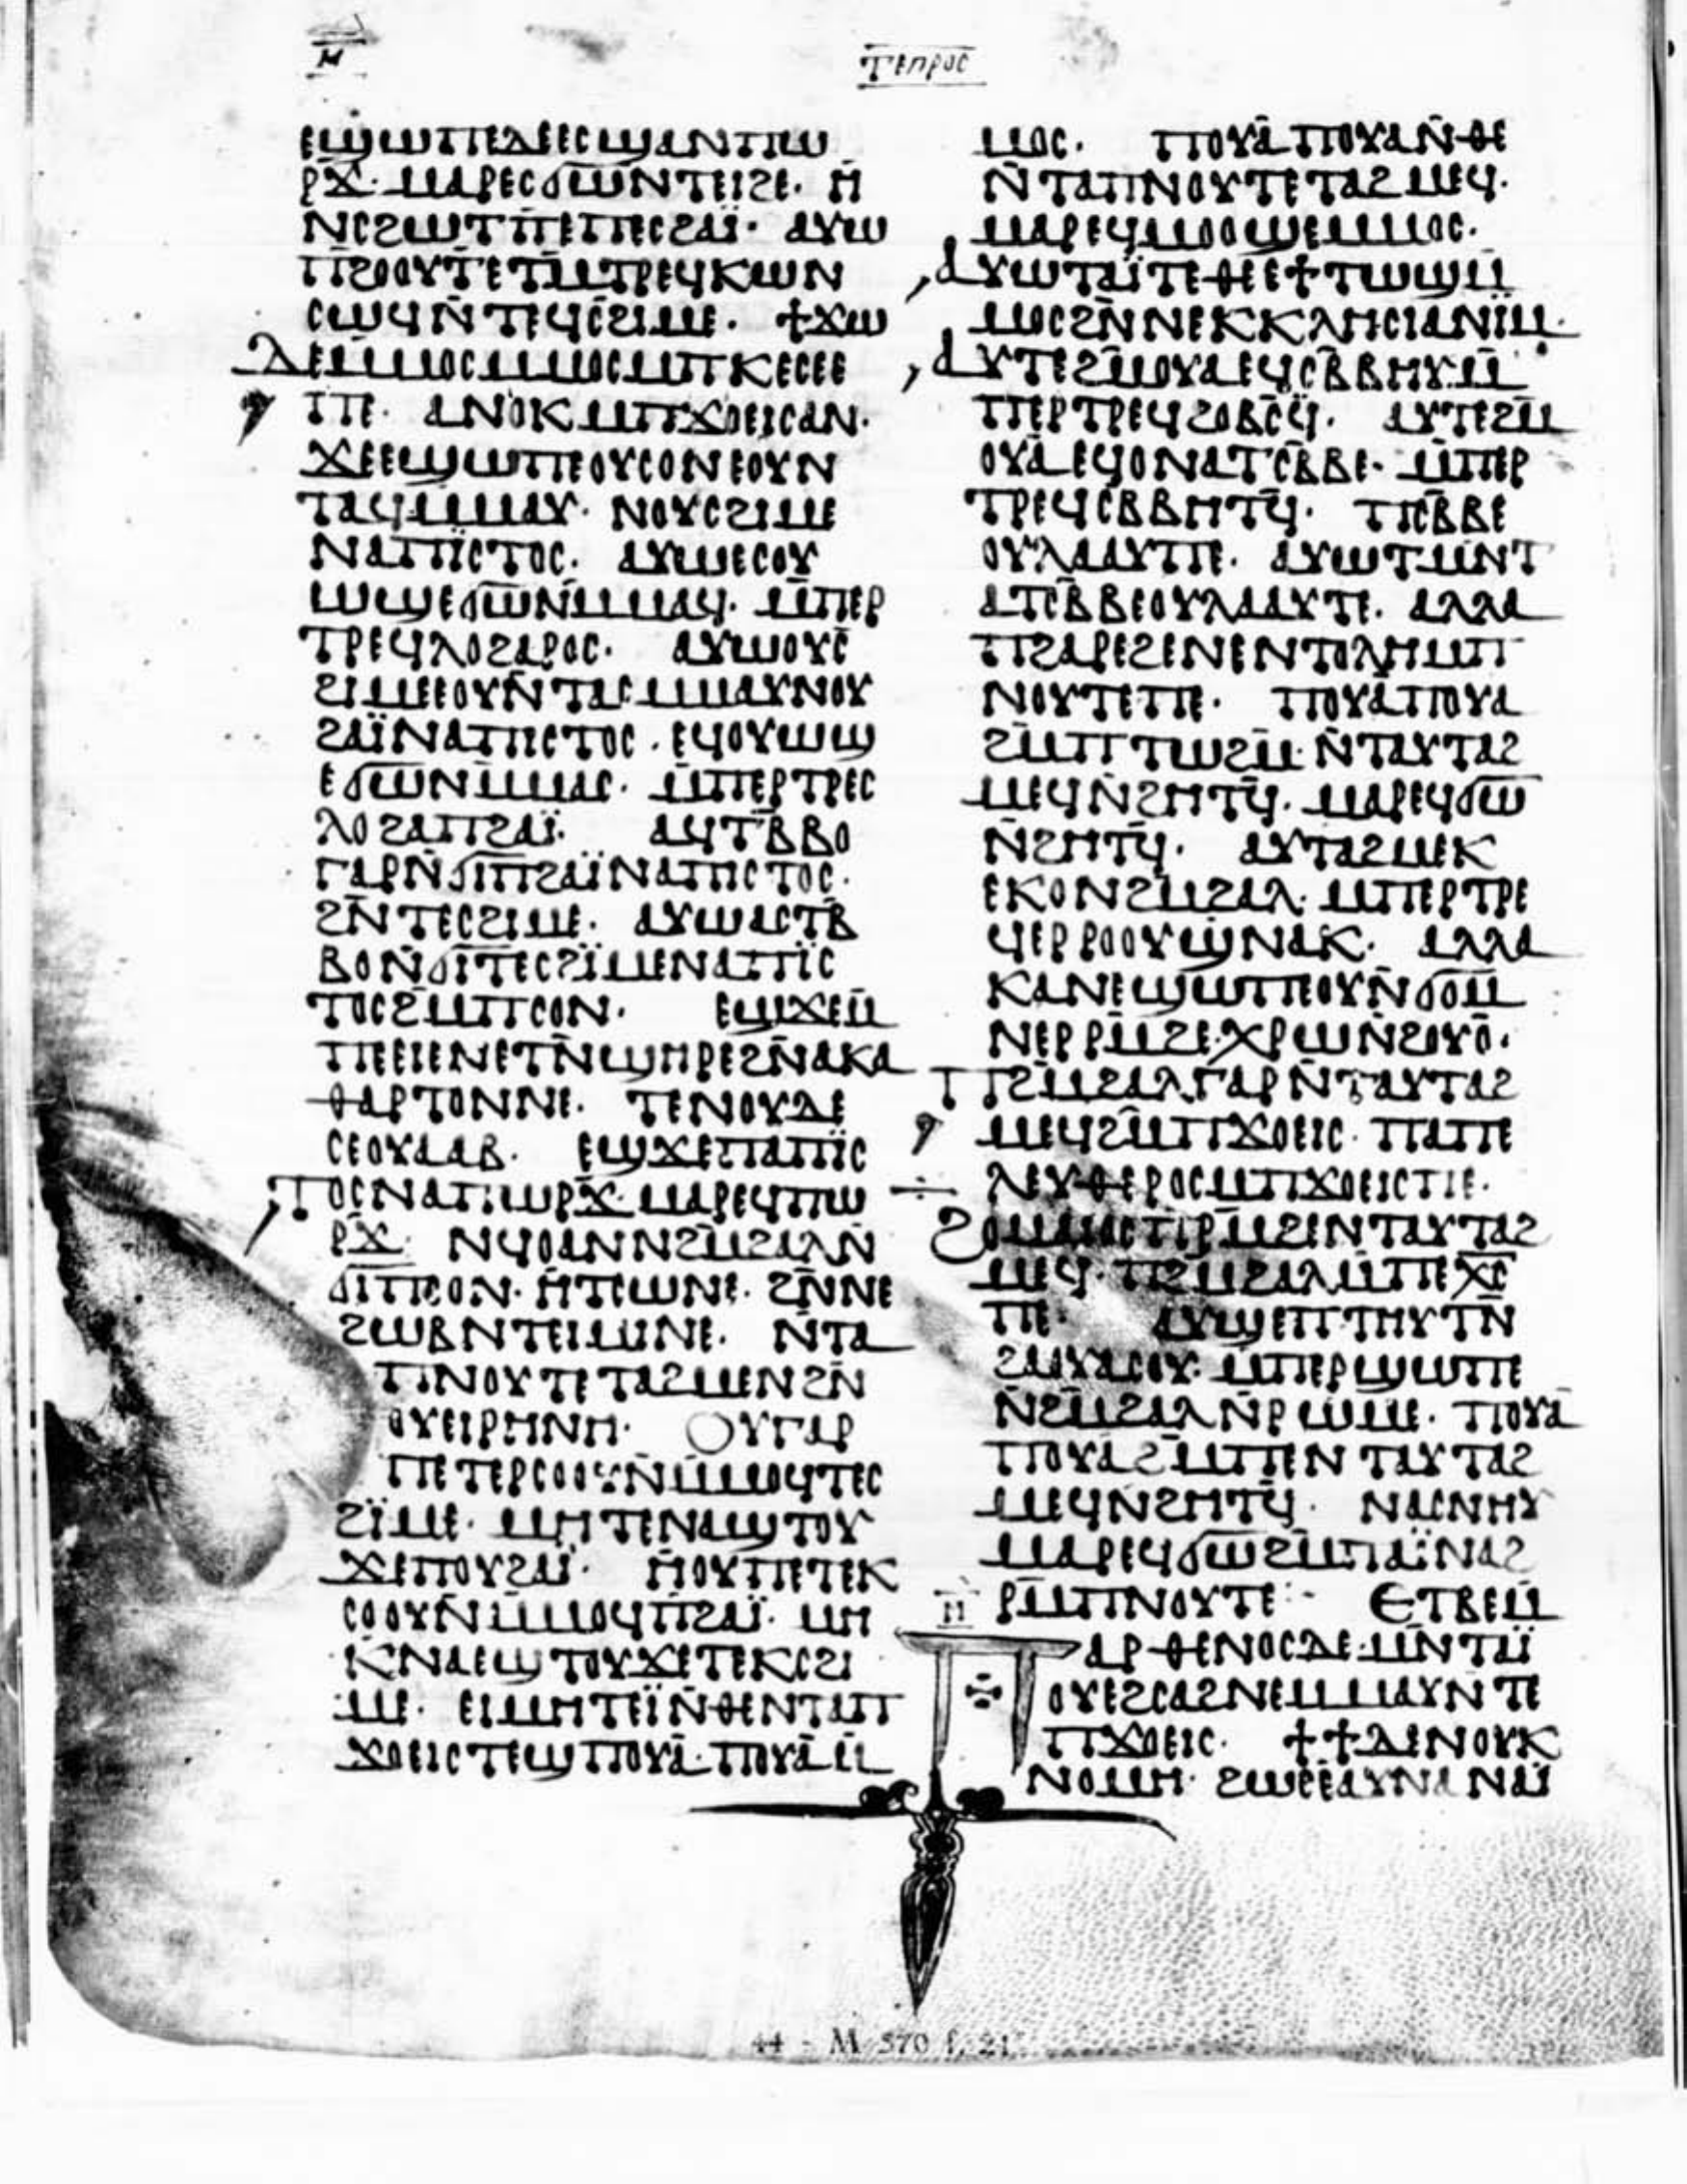 ⲙ̅
ⲧⲉⲡⲣⲟⲥ
ⲉϣⲱⲡⲉⲇⲉⲉⲥϣⲁⲛⲡⲱ
ⲣϫ· ⲙⲁⲣⲉⲥϭⲱⲛⲧⲉⲓϩⲉ· ⲏ̄
ⲛⲥϩⲱⲧⲡⲉⲡⲉⲥϩⲁⲓ̈· ⲁⲩⲱ
ⲡϩⲟⲟⲩⲧⲉⲧⲙ̄ⲧⲣⲉϥⲕⲱⲛ
ⲥⲱϥⲛ̄ⲧⲉϥⲥϩⲓⲙⲉ· ϯϫⲱ
ⲇⲉⲙ̄ⲙⲟⲥⲙⲙⲟⲥⲙⲡⲕⲉⲥⲉⲉ
ⲡⲉ· ⲁⲛⲟⲕⲙⲡϫⲟⲉⲓⲥⲁⲛ·
ϫⲉⲉϣⲱⲡⲉⲟⲩⲥⲟⲛⲉⲟⲩⲛ
ⲧⲁϥⲙⲙⲁⲩ· ⲛⲟⲩⲥϩⲓⲙⲉ
ⲛⲁⲡⲓ̈ⲥⲧⲟⲥ· ⲁⲩⲱⲉⲥⲟⲩ
ⲱϣⲉϭⲱⲛⲙ̄ⲙⲁϥ· ⲙ̄ⲡⲉⲣ
ⲧⲣⲉϥⲗⲟϩⲁⲣⲟⲥ· ⲁⲩⲱⲟⲩⲥ̄
ϩⲓⲙⲉⲉⲟⲩⲛ̄ⲧⲁⲥⲙⲙⲁⲩⲛⲟⲩ
ϩⲁⲓ̈ⲛⲁⲡⲓⲥⲧⲟⲥ· ⲉϥⲟⲩⲱϣ
ⲉϭⲱⲛⲙ̄ⲙⲁⲥ· ⲙ̄ⲡⲉⲣⲧⲣⲉⲥ
ⲗⲟϩⲁⲡϩⲁⲓ̈· ⲁϥⲧⲃ̄ⲃⲟ
ⲅⲁⲣⲛ̄ϭⲓⲡϩⲁⲓ̈ⲛⲁⲡⲓⲥⲧⲟⲥ·
ϩⲛ̄ⲧⲉⲥϩⲓⲙⲉ· ⲁⲩⲱⲁⲥⲧⲃ̄
ⲃⲟⲛ̄ϭⲓⲧⲉⲥϩⲓ̈ⲙⲉⲛⲁⲡⲓ̈ⲥ
ⲧⲟⲥϩⲙ̄ⲡⲥⲟⲛ· ⲉϣϫⲉⲙ̄
ⲡⲉⲉⲓⲉⲛⲉⲧⲛ̄ϣⲏⲣⲉϩⲛ̄ⲁⲕⲁ
ⲑⲁⲣⲧⲟⲛⲛⲉ· ⲧⲉⲛⲟⲩⲇⲉ
ⲥⲉⲟⲩⲁⲁⲃ· ⲉϣϫⲉⲡⲁⲡⲓ̈ⲥ
ⲧⲟⲥⲛⲁⲡⲱⲣϫ· ⲙⲁⲣⲉϥⲡⲱ
ⲣϫ· ⲛϥⲟⲁⲛⲛϩⲙ̄ϩⲁⲗⲛ̄
ϭⲓⲡⲥⲟⲛ· ⲏ̄ⲧⲥⲱⲛⲉ· ϩⲛ̄ⲛⲉ
ϩⲱⲃⲛⲧⲉⲓⲙⲓⲛⲉ· ⲛ̄ⲧⲁ
ⲡⲛⲟⲩⲧⲉⲧⲁϩⲙⲉⲛϩⲛ̄
ⲟⲩⲉⲓⲣⲏⲛⲏ· ⲟⲩⲅⲁⲣ
ⲡⲉⲧⲉⲣⲥⲟⲟⲩⲛ̄ⲙ̄ⲙⲟϥⲧⲉⲥ
ϩⲓ̈ⲙⲉ· ⲙⲏⲧⲉⲛⲁϣⲧⲟⲩ
ϫⲉⲡⲟⲩϩⲁⲓ̈· ⲏ̄ⲟⲩⲡⲉⲧⲉⲕ
ⲥⲟⲟⲩⲛ̄ⲙ̄ⲙⲟϥⲡϩⲁⲓ̈· ⲙⲏ
ⲕⲛⲁⲉϣⲧⲟⲩϫⲉⲧⲉⲕⲥϩⲓ
ⲙⲉ· ⲉⲓⲙⲏⲧⲉⲓ̈ⲛ̄ⲑⲉⲛⲧⲁⲡ
ϫⲟⲉⲓⲥⲧⲉϣⲡⲟⲩⲁ̄·ⲡⲟⲩⲁ̄ⲙ̄
ⲙⲟⲥ· ⲡⲟⲩⲁ̄ⲡⲟⲩⲁⲛ̄ⲑⲉ
ⲛ̄ⲧⲁⲡⲛⲟⲩⲧⲉⲧⲁϩⲙⲉϥ·
ⲙⲁⲣⲉϥⲙⲟⲟϣⲉⲙⲙⲟⲥ·
ⲁⲩⲱⲧⲁⲓ̈ⲧⲉⲑⲉⲉϯⲧⲱϣⲙ̄
ⲙⲟⲥϩⲛ̄ⲛⲉⲕⲕⲗⲏⲥⲓⲁⲛⲓⲙ·
ⲁⲩⲧⲉϩⲙⲟⲩⲁⲉϥⲥⲃ̄ⲃⲏⲩⲙ̄
ⲡⲉⲣⲧⲣⲉϥϩⲟⲃⲥϥ̄· ⲁⲩⲧⲉϩⲙ̄
ⲟⲩⲁ̄ⲉϥⲟⲛⲁⲧⲥⲃ̄ⲃⲉ· ⲙ̄ⲡⲉⲣ
ⲧⲣⲉϥⲥⲃ̄ⲃⲏⲧϥ̄· ⲡⲥⲃ̄ⲃⲉ
ⲟⲩⲗⲁⲁⲩⲡⲉ· ⲁⲩⲱⲧⲙⲛⲧ
ⲁⲧⲥⲃ̄ⲃⲉⲟⲩⲗⲁⲁⲩⲧⲉ· ⲁⲗⲗⲁ
ⲡϩⲁⲣⲉϩⲉⲛⲉⲛⲧⲟⲗⲏⲙⲡ
ⲛⲟⲩⲧⲉⲡⲉ· ⲡⲟⲩⲁⲡⲟⲩⲁ
ϩⲙⲡⲧⲱϩⲙ̄·ⲛ̄ⲧⲁⲩⲧⲁϩ
ⲙⲉϥⲛ̄ϩⲏⲧϥ̄· ⲙⲁⲣⲉϥϭⲱ
ⲛ̄ϩⲏⲧϥ̄· ⲁⲩⲧⲁϩⲙⲉⲕ
ⲉⲕⲟⲛϩⲙ̄ϩⲁⲗ· ⲙⲡⲉⲣⲧⲣⲉ
ϥⲉⲣⲣⲟⲟⲩϣⲛⲁⲕ· ⲁⲗⲗⲁ
ⲕⲁⲛⲉϣⲱⲡⲉⲟⲩⲛ̄ϭⲟⲙ
ⲛⲉⲣⲣⲙ̄ϩⲉ·ⲭⲣⲱⲛ̄ϩⲟⲩⲟ̄·
ⲡϩⲙ̄ϩⲁⲗⲅⲁⲣⲛ̄ⲧⲁⲩⲧⲁϩ
ⲙⲉϥϩⲙ̄ⲡϫⲟⲉⲓⲥ· ⲡⲁⲡⲉ
ⲗⲉⲩⲑⲉⲣⲟⲥⲙⲡϫⲟⲉⲓⲥⲡⲉ·
ϩⲟⲙⲁⲓⲟⲥⲡⲣⲙ̄ϩⲉⲛⲧⲁⲩⲧⲁϩ
ⲙⲉϥ· ⲡϩⲙ̄ϩⲁⲗⲙ̄ⲡⲉⲭ̅ⲥ̅
ⲡⲉ· ⲁⲩϣⲉⲡⲧⲏⲩⲧⲛ̄
ϩⲁⲩⲁⲥⲟⲩ· ⲙⲡⲉⲣϣⲱⲡⲉ
ⲛ̄ϩⲙ̄ϩⲁⲗⲛ̄ⲣⲱⲙⲉ· ⲡⲟⲩⲁ
ⲡⲟⲩⲁ̄ϩⲙ̄ⲡⲉⲛⲧⲁⲩⲧⲁϩ
ⲙⲉϥⲛϩⲏⲧϥ̄· ⲛⲁⲥⲛⲏⲩ
ⲙⲁⲣⲉϥϭⲱϩⲙ̄ⲡⲁⲓ̈ⲛⲁϩ
ⲣⲙ̄ⲡⲛⲟⲩⲧⲉ:- ⲉⲧⲃⲉⲙ̄
ⲡⲁⲣⲑⲉⲛⲟⲥⲇⲉ·ⲙⲛ̄ⲧⲁⲓ̈
ⲟⲩⲉϩⲥⲁϩⲛⲉⲙⲙⲁⲩⲛⲧⲉ
ⲡϫⲟⲉⲓⲥ· ϯϯⲇⲉⲛⲟⲩⲅ
ⲛⲟⲙⲏ· ϩⲱⲥⲉⲁⲩⲛⲁⲛⲁⲓ̈
44 - M 570 f. 21